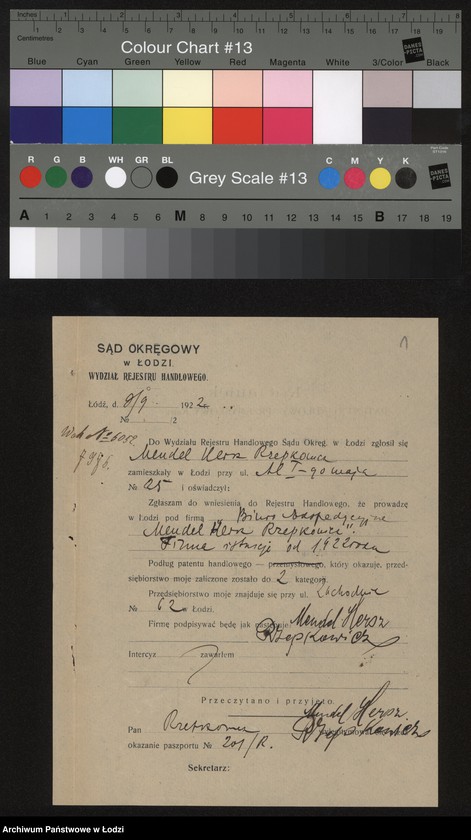 Inches 1 2 3 4 5 6 7 8
Centimetres 1 2 3 4 5 6 7 8 9 10 11 12 13 14 15 16 17 18 19
Colour Chart #13
DANES PICTA
Blue Cyan Green Yellow Red Magenta White 3/Color Black
R G B WH GR BL
Grey Scale #13
C M Y K
DANES PICTA
A 1 2 3 4 5 6 M 8 9 10 11 12 13 14 15 B 17 18 19
1
SĄD OKRĘGOWY
w ŁODZI.
WYDZIAŁ REJESTRU HANDLOWEGO.
Łódź, d. 8/9 192 2
№ /2
Do Wydziału Rejestru Handlowego Sądu Okręg. w Łodzi zgłosił się
Mendel Hersz Rzepkowicz
zamieszkały w Łodzi przy ul. Al I-go maja
№ 25 i oświadczył:
Zgłaszam do wniesienia do Rejestru Handlowego, że prowadzę
w Łodzi pod firmą „Biuro Ekspedycyjne
Mendel Hersz Rzepkowicz".
Firma istnieje od 1922 roku
Podług patentu handlowego — przemysłowego, który okazuje, przed-
siębiorstwo moje zaliczone zostało do 2 kategorji.
Przedsiębiorstwo moje znajduje się przy ul. Zachodnia
№ 62 w Łodzi.
Firmę podpisywać będę jak następuje: Mendel Hersz
Rzepkowicz
Intercyz zawarłem
Przeczytano i przyjęto.
Mendel Hersz
Rzepkowicz
Pan Rzepkowicz
okazanie paszportu № 201/R.
Sekretarz:
Archiwum Państwowe w Łodzi